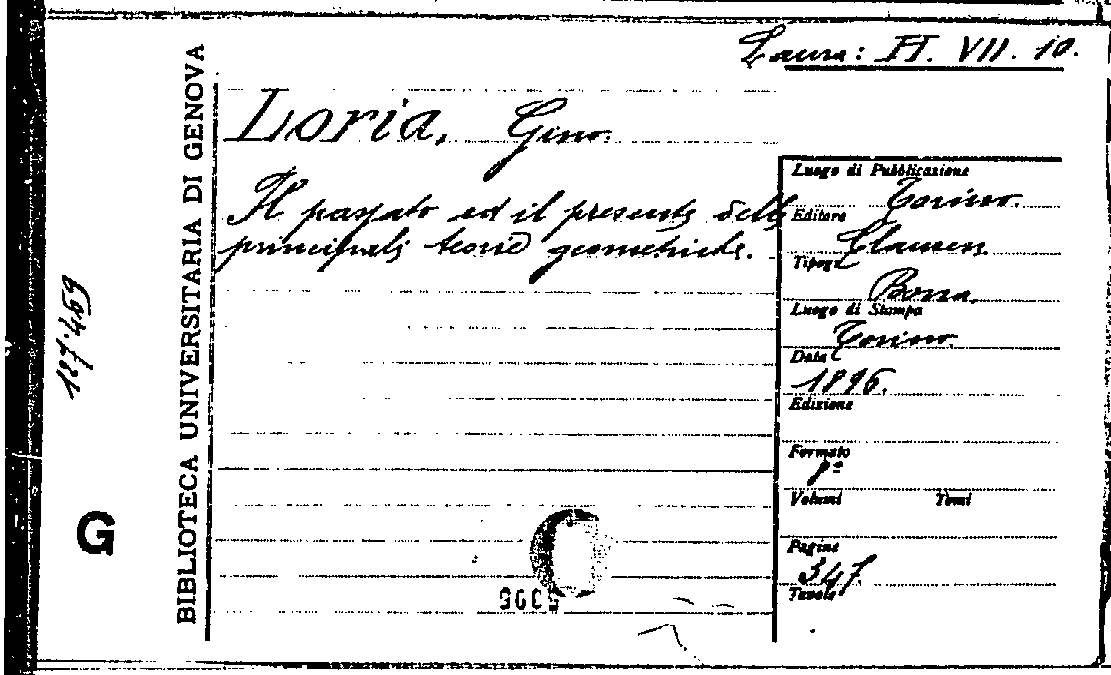 Laura: FI. VII. 10.
BIBLIOTECA UNIVERSITARIA DI GENOVA
187.459
G
Loria, Gino.
Il passato ed il presente delle
principali teorie geometriche.
Luogo di Pubblicazione
Torino.
Editore
Clausen
Tipogr.
Bona.
Luogo di Stampa
Torino.
Data
1896.
Edizione
Formato
Volumi Tomi
Pagine
347
Tavole